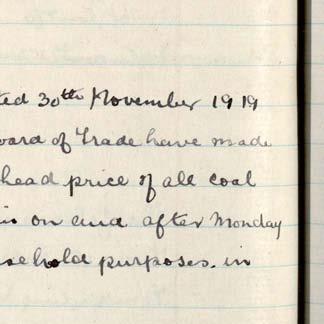 ted 30th November 1919
oard of Trade have made
head price of all coal
is on and after Monday
sehold purposes. in